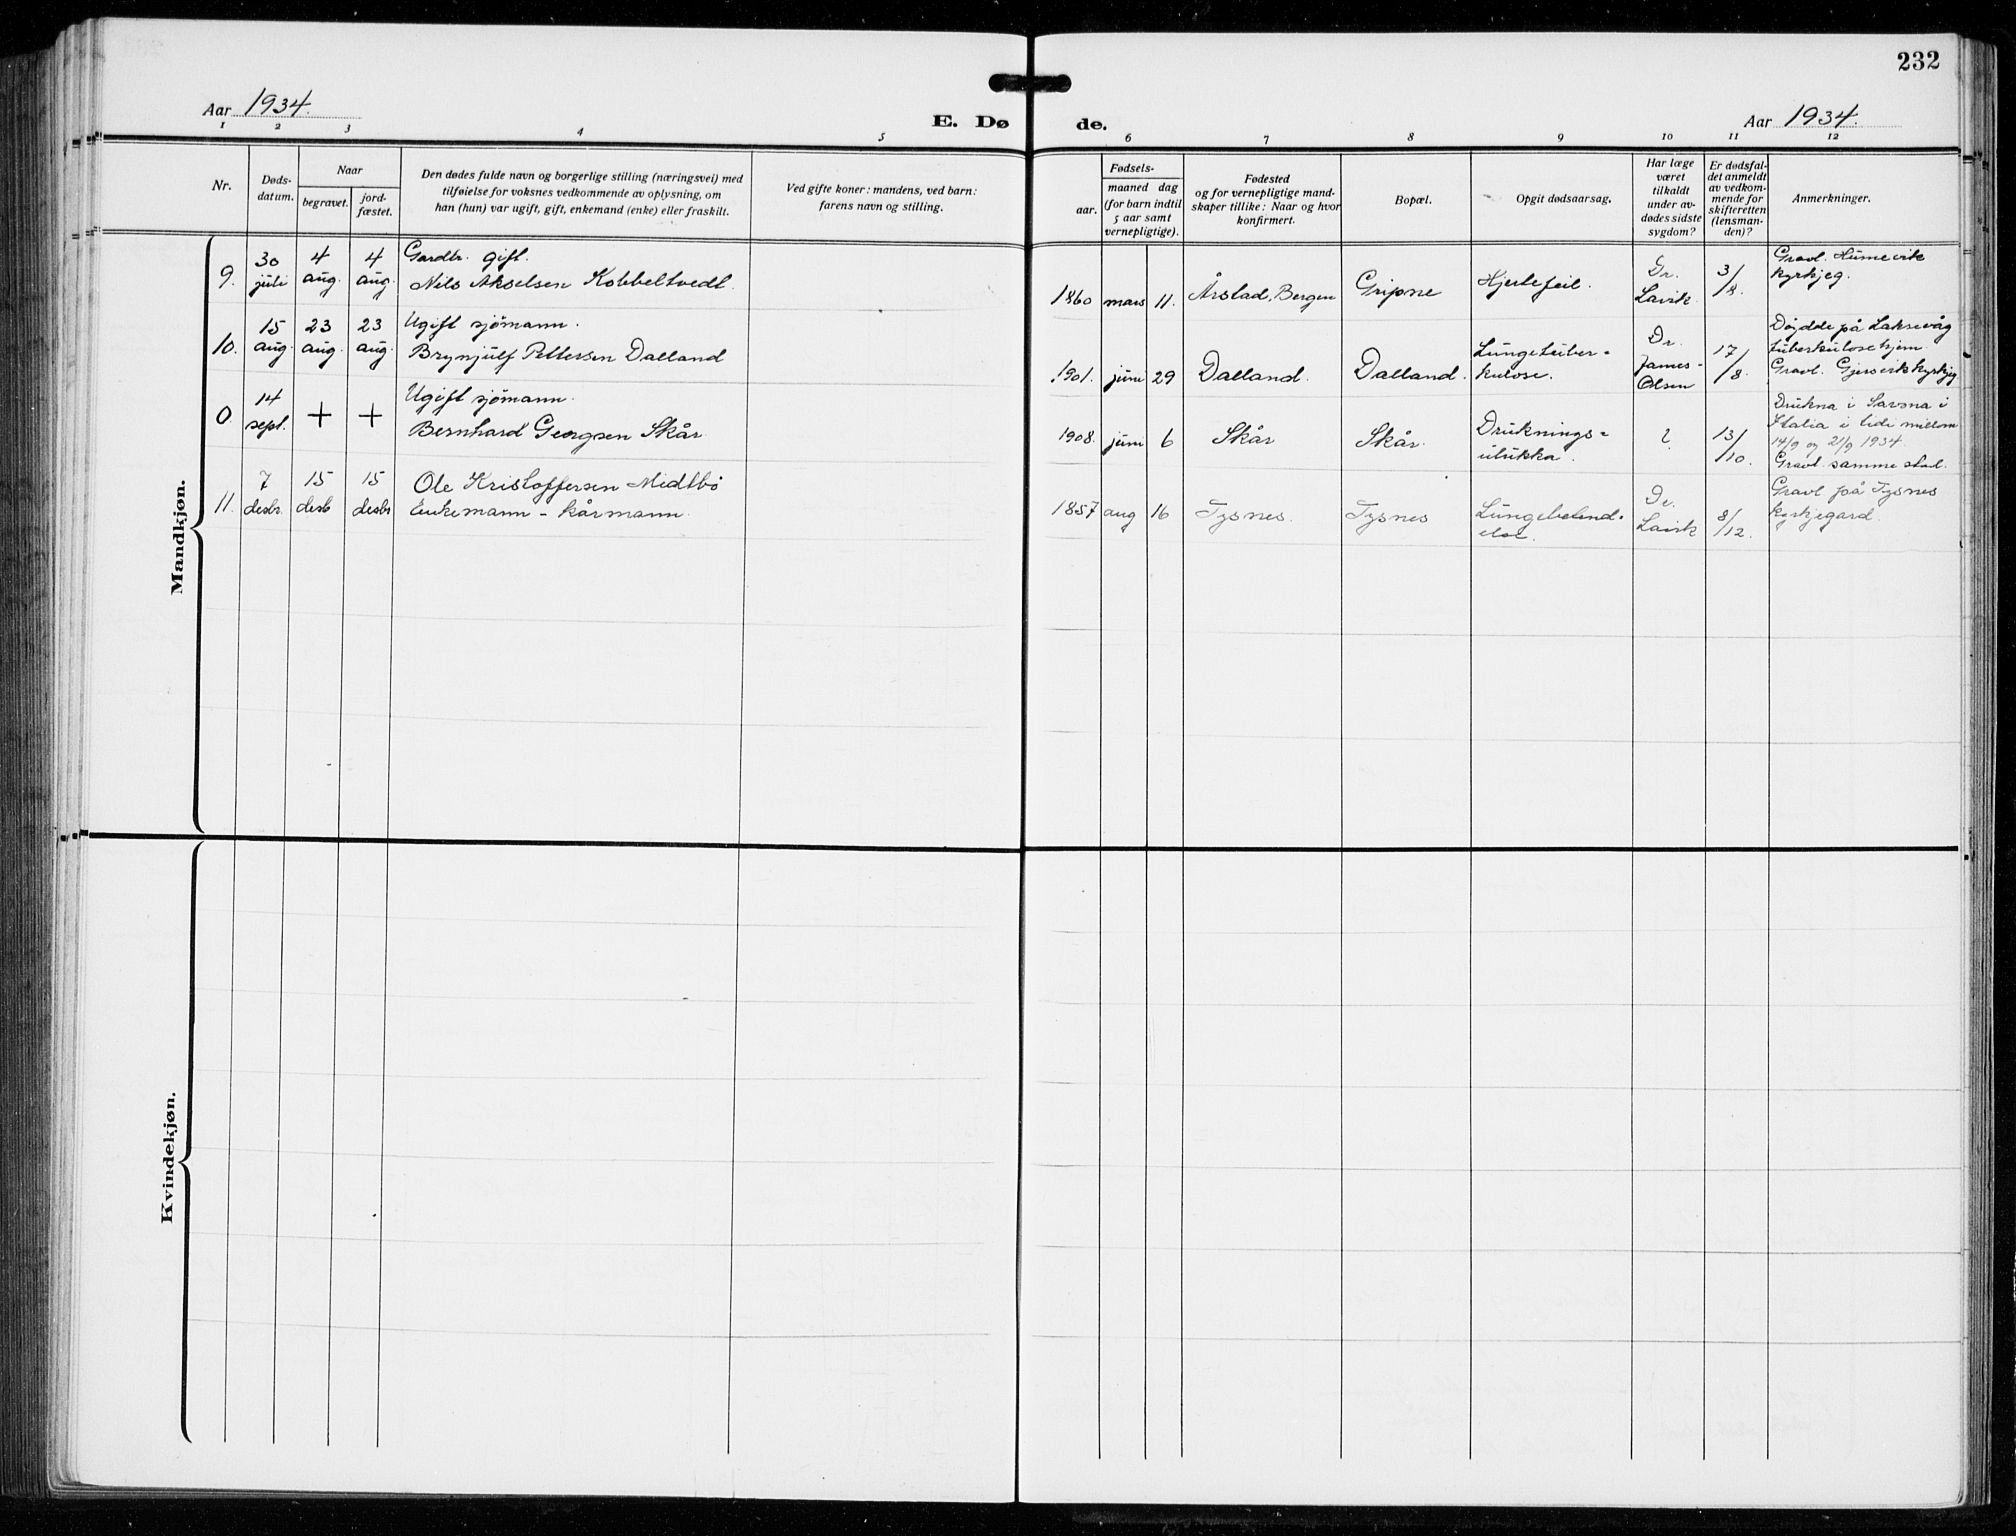 232
Aar 1934.
E. Døde.
Aar 1934.
1 2 3 4 5 6 7 8 9 10 11 12
Nr.
Døds-
datum.
Naar
begravet.
jord-
fæstet.
Den dødes fulde navn og borgerlige stilling (næringsvei) med
tilføielse for voksnes vedkommende av oplysning, om
han (hun) var ugift, gift, enkemand (enke) eller fraskilt.
Ved gifte koner: mandens, ved barn:
farens navn og stilling.
Fødsels-
aar.
maaned dag
(for barn indtil
5 aar samt
vernepligtige).
Fødested
og for vernepligtige mand-
skaper tillike: Naar og hvor
konfirmert.
Bopæl.
Opgit dødsaarsag.
Har læge
været
tilkaldt
under av-
dødes sidste
sygdom?
Er dødsfal-
det anmeldt
av vedkom-
mende for
skifteretten
(lensman-
den)?
Anmerkninger.
Mandkjøn.
9.
30
juli
4
aug.
4
aug.
Gardbr. gift.
Nils Akselsen Kobbeltvedt.
1860 mars 11.
Årstad, Bergen
Gripne
Hjertefeil.
Dr.
Lavik.
3/8.
Gravl. Humevik
kyrkjeg.
10.
15
aug.
23
aug.
23
aug.
Ugift sjömann.
Brynjulf Pettersen Dalland
1901. juni 29
Dalland.
Dalland.
Lungetuber-
kulose.
Dr.
James-
Olsen
17/8.
Døydde på Laksevåg
tuberkulosehjem.
Gravl. Gjersvik kyrkjeg
0
14
sept.
+
+
Ugift sjömann.
Bernhard Georgsen Skår
1908. juni 6
Skår
Skår.
Druknings-
ulukka.
?
13/10.
Drukna i Savona i
Italia i tidi millom
14/9 og 21/9 1934.
Gravl. samme stad.
11.
7
desbr.
15
desb
15
desbr
Ole Kristoffersen Midtbö
Enkemann - kårmann.
1857 aug 16
Tysnes.
Tysnes
Lungebetend-
else.
Dr.
Lavik
8/12.
Gravl på Tysnes
kyrkjegard.
Kvindekjøn.